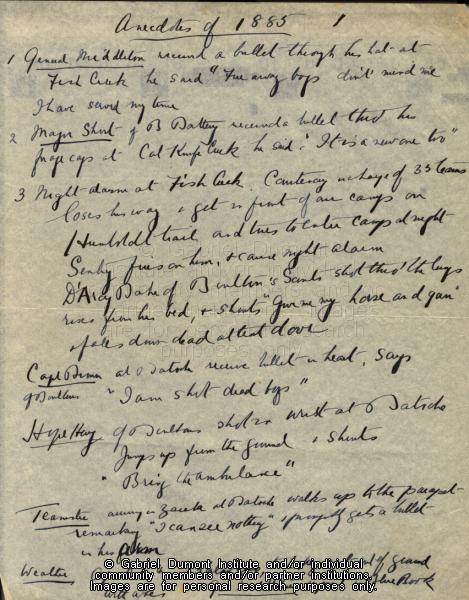 Anecdotes of 1885 1
1 General Middleton received a bullet through his hat at
Fish Creek he said "Fire away boys don't mind me
I have served my time
2 Major Short of B Battery received a bullet thro his
forage cap at Cut Knife Creek he said: "It is a new one too"
3 Night alarm at Fish Creek. Canteney in charge of 35 teams
loses his way & gets in front of our camps on
Humboldt track, and tries to enter camp at night
Sentry fires on him, & cause night alarm
D'Arcy Baker of Boulton's Scouts shot thro' the lungs
rises from his bed, & shouts "Give me my horse and gun"
& falls down dead at tent door
Capt Brown at Batoche receive bullet in heart, says
of Boultons "I am shot dead boys"
Hope Hay of Boultons shot in wrist at Batoche
Jumps up from the ground & shouts
"Bring the ambulance"
Teamster in Zareba at Batoche walks up to the parapet
remarking "I can see nothing" & promptly gets a bullet
in his
Weather of ground
with a
© Gabriel Dumont Institute and/or individual
community members and/or partner institutions.
Images are for personal research purposes only.